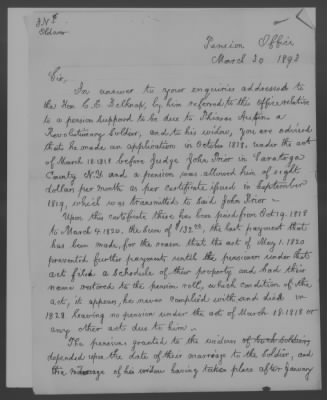 Pension Office
March 20 1893
Sir,
In answer to your enquiries addressed to
the Hon. C. E. Belknap, by him referred to this office, relative
to a pension supposed to be due to Thomas Austin a
Revolutionary Soldier, and to his widow, you are advised
that he made an application in October 1818, under the act
of March 18 1818 before Judge John Prior in Saratoga
County N.Y. and a pension was allowed him of eight
dollar per month as per certificate issued in September
1819, which was transmitted to said John Prior –
Upon this certificate there has been paid from Oct 19. 1818
to March 4. 1820. the sum of $132 the last payment that
has been made, for the reason that the act of May 1. 1820
prevented further payments until the pensioner under that
act filed a schedule of their property and had their
name restored to the pension roll, which condition of the
act, it appears, he never complied with and died in
1828 leaving no pension under the act of March 18 1818 or
any other acts due to him –
The pensions granted to the widows of such soldiers
depended upon the date of their marriage to the Soldier, and
the marriage of his widow having taken place after January